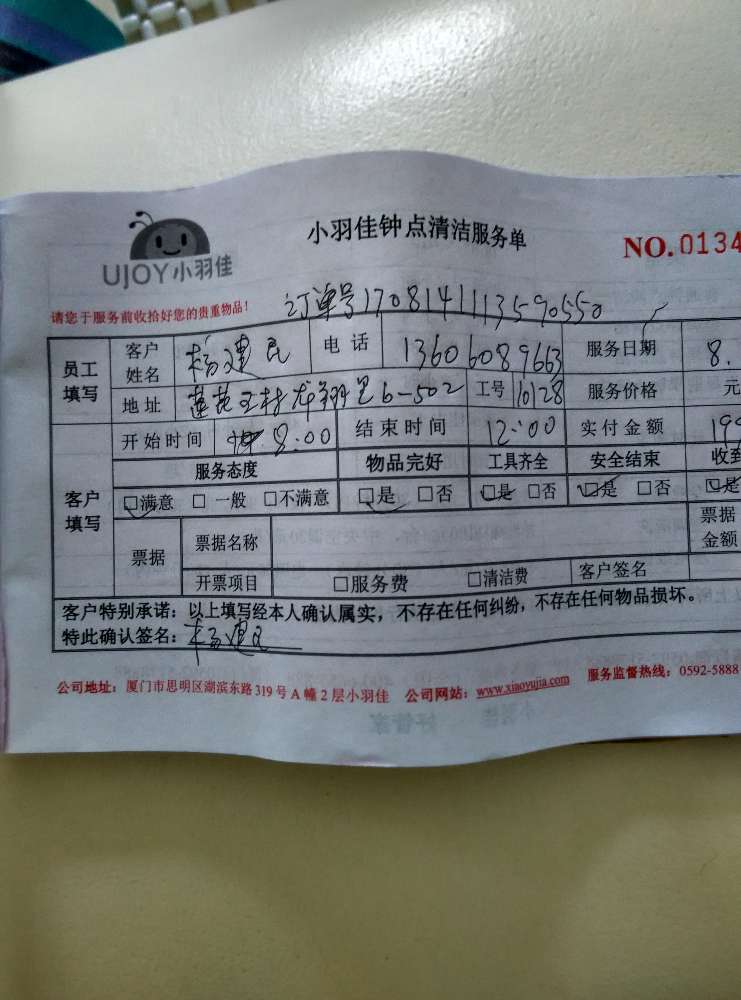 UJOY小羽佳
小羽佳钟点清洁服务单
NO.0134
请您于服务前收拾好您的贵重物品!
订单号1708141113590550
员工填写 客户姓名 杨建民 电话 13606089663 服务日期 8.
地址 莲花五村龙翔里6-502 工号 10128 服务价格 元
客户填写 开始时间 8:00 结束时间 12:00 实付金额 199
服务态度 物品完好 工具齐全 安全结束 收到
□满意 □一般 □不满意 □是 □否 □是 □否 □是 □否 □是
票据 票据名称 票据金额
开票项目 □服务费 □清洁费 客户签名
客户特别承诺:以上填写经本人确认属实,不存在任何纠纷,不存在任何物品损坏。
特此确认签名:杨建民
公司地址:厦门市思明区湖滨东路319号A幢2层小羽佳 公司网站:www.xiaoyujia.com 服务监督热线:0592-5888